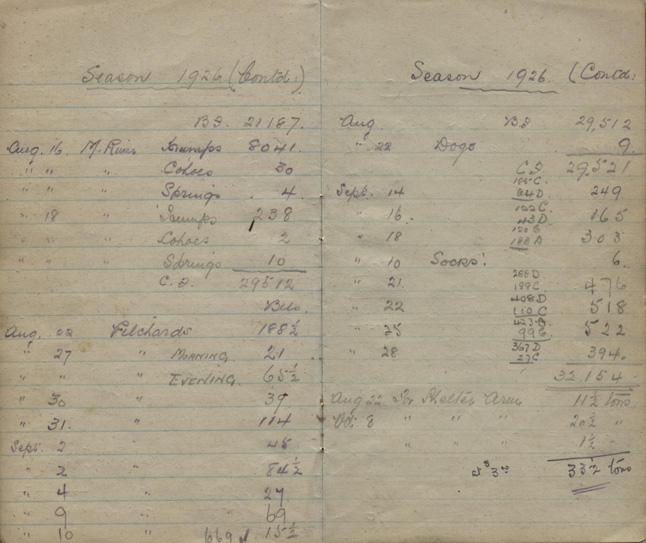 Season 1926 (Contd:)
B.F. 21187.
Aug. 16 M. River Humps 8041.
" " " Cohoes 30
" " " Springs 4.
" 18 " Humps 238
" " " Cohoes 2
" " " Springs 10
C.F. 29512
Bls.
Aug. Pilchards 188½
" 27 " MORNING 21
" " " EVENING 65½
" 30 " 39
" 31. " 114
Sept. 2 " 48
" 2 " 84½
" 4 " 27
" 9 " 69
" 10 " 15½
Season 1926 (Contd:
Aug. B.F 29,512
" 22 Dogs 9.
C.F. 29,521
Sept. 14 D. 249
" 16. 122C. 43D. 165
" 18 303
" 10 SOCKS. 6.
" 21. 476
" 22 408D 110C 518
" 25 99C 522
" 28 367D 27C 394.
32,154
Aug 22 Shelter Arm 11½ tons
Oct 8 " " " 20½ "
" " " 1½ "
33½ tons